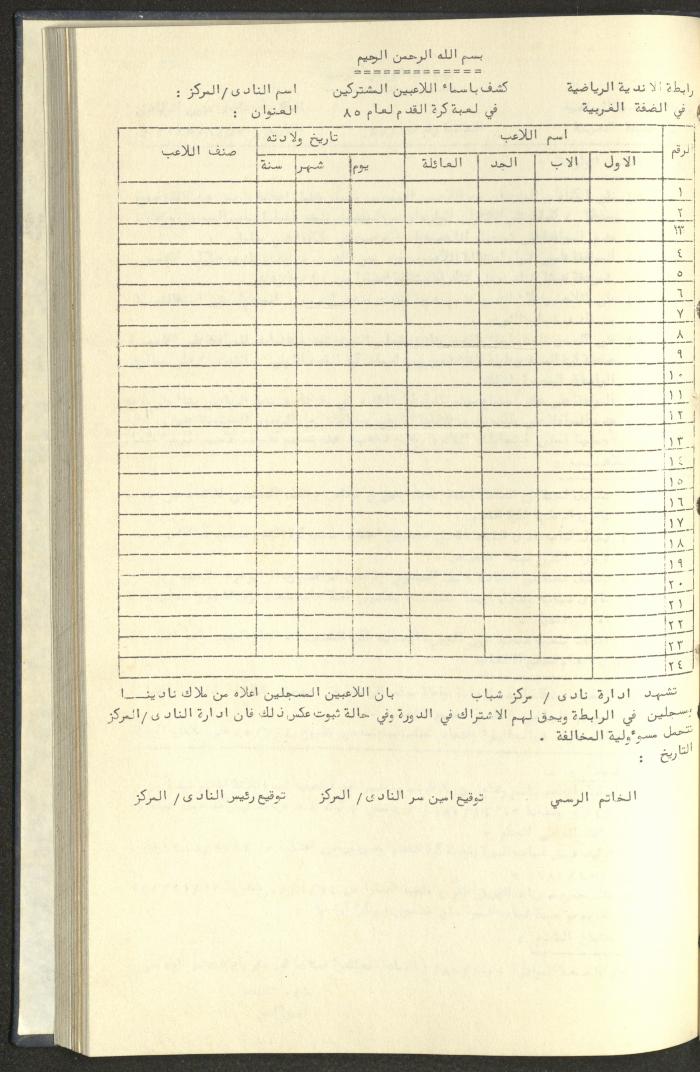 بسم الله الرحمن الرحيم
رابطة الاندية الرياضية كشف باسماء اللاعبين المشتركين اسم النادى/المركز :
في الضفة الغربية في لعبة كرة القدم لعام ٨٥ العنوان :
الرقم اسم اللاعب تاريخ ولادته صنف اللاعب
الاول الاب الجد العائلة يوم شهر سنة
١
٢
٣
٤
٥
٦
٧
٨
٩
١٠
١١
١٢
١٣
١٤
١٥
١٦
١٧
١٨
١٩
٢٠
٢١
٢٢
٢٣
٢٤
تشهد ادارة نادى / مركز شباب بان اللاعبين المسجلين اعلاه من ملاك نادينــا
ومسجلين في الرابطة ويحق لهم الاشتراك في الدورة وفي حالة ثبوت عكس ذلك فان ادارة النادى/المركز
تتحمل مسوءولية المخالفة .
التاريخ :
الخاتم الرسمي توقيع امين سر النادى/ المركز توقيع رئيس النادى/ المركز